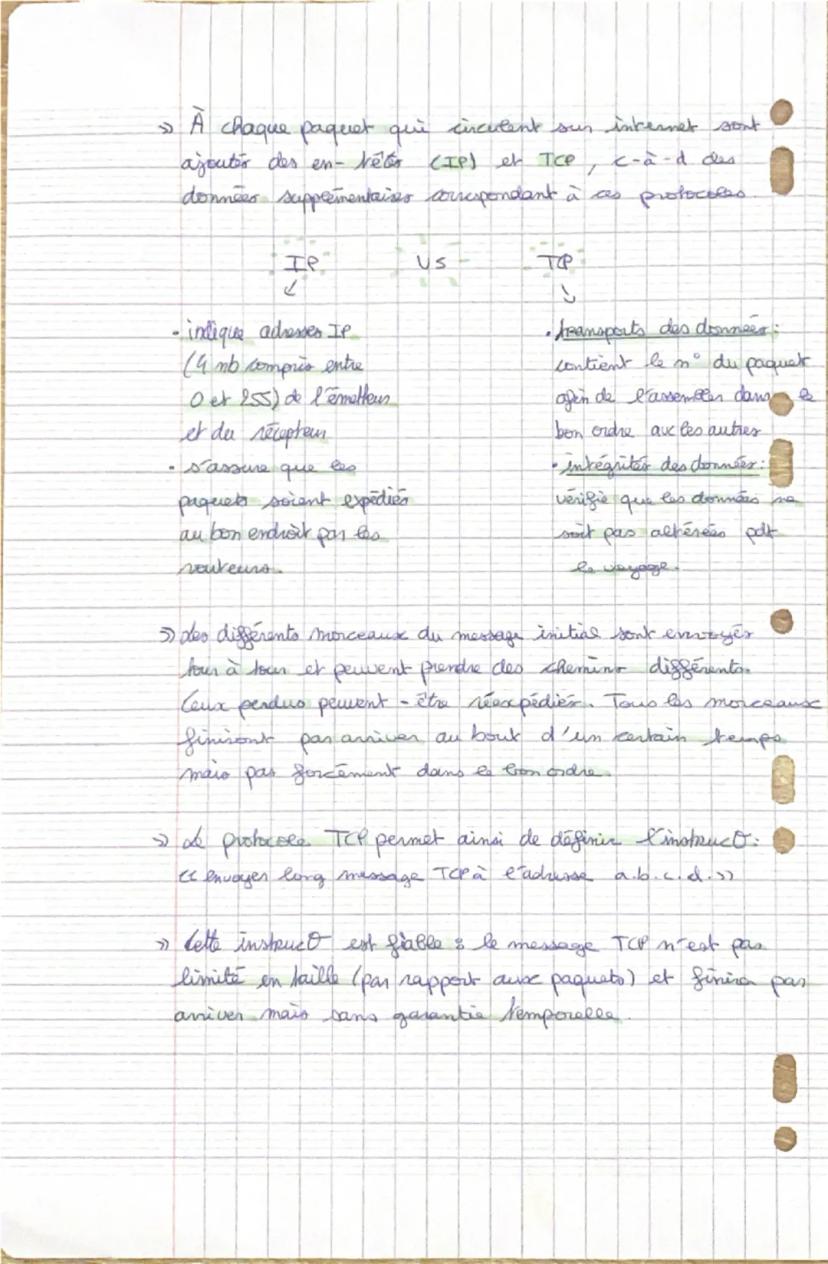 » À chaque paquet qui circulent sur internet sont
ajoutés des en-têtes (IP) et TCP, c-à-d des
données supplémentaires correspondant à ces protocoles.
IP VS TCP
↙ ↘
• indique adresses IP
(4 nb compris entre
0 et 255) de l'émetteur
et du récepteur
• s'assure que les
paquets soient expédiés
au bon endroit par les
routeurs.
• transports des données :
contient le n° du paquet
afin de l'assembler dans le
bon ordre avec les autres
• intégrités des données :
vérifie que les données ne
soit pas altérées pdt
le voyage.
» Les différents morceaux du message initial sont envoyés
tour à tour et peuvent prendre des chemins différents.
Ceux perdus peuvent-être réexpédiés. Tous les morceaux
finiront par arriver au bout d'un certain temps
mais pas forcément dans le bon ordre.
» Le protocole TCP permet ainsi de définir l'instruct° :
<< envoyer long message TCP à l'adresse a.b.c.d. >>
» Cette instruct° est fiable : le message TCP n'est pas
limité en taille (par rapport aux paquets) et finira par
arriver mais sans garantie temporelle.